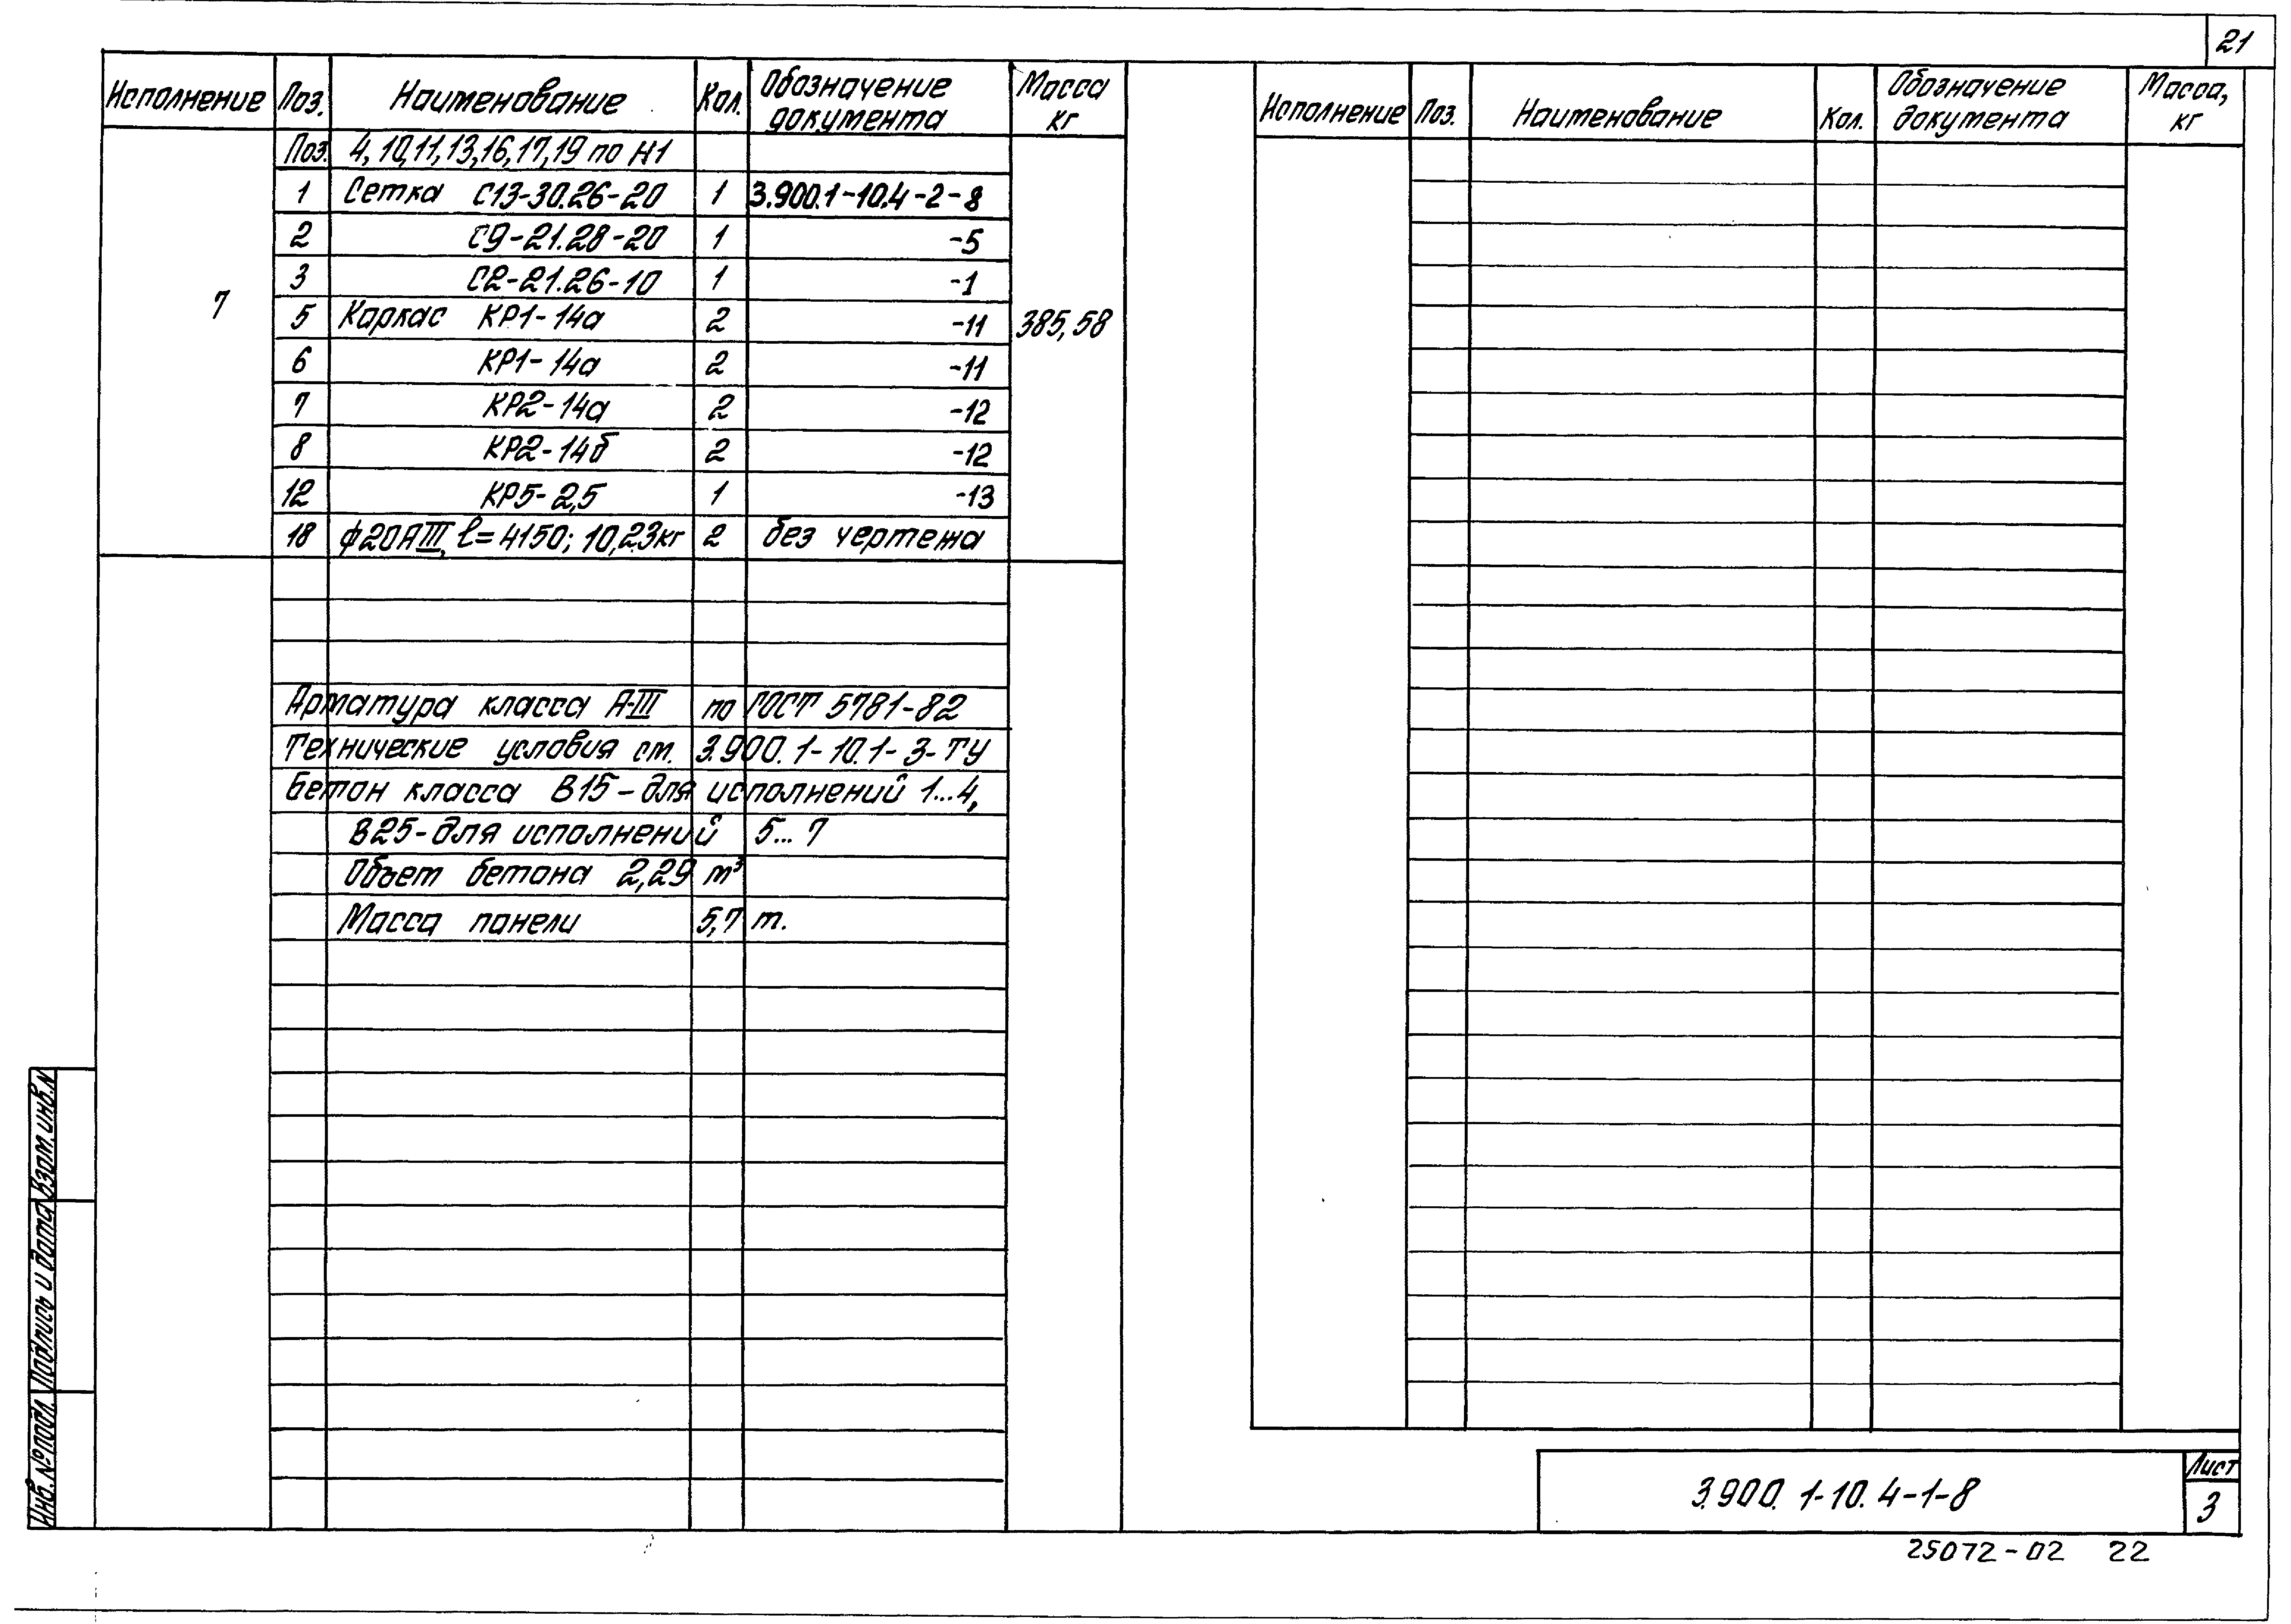 21
Исполнение Поз. Наименование Кол. Обозначение документа Масса кг
Поз. 4, 10, 11, 13, 16, 17, 19 по И1
1 Сетка С13-30.26-20 1 3.900.1-10.4-2-8
2 С9-21.28-20 1 -5
3 С2-21.26-10 1 -1
7
5 Каркас КР1-14а 2 -11 385,58
6 КР1-14а 2 -11
7 КР2-14а 2 -12
8 КР2-14б 2 -12
12 КР5-2,5 1 -13
18 ф20АIII, ℓ=4150; 10,23кг 2 без чертежа
Арматура класса А-III по ГОСТ 5781-82
Технические условия см. 3.900.1-10.1-3-ТУ
Бетон класса В15-для исполнений 1...4,
В25-для исполнений 5...7
Объем бетона 2,29 м³
Масса панели 5,7 т.
Исполнение Поз. Наименование Кол. Обозначение документа Масса, кг
Взам. инв. N
Подпись и дата
Инв. № подл.
3.900.1-10.4-1-8
Лист
3
25072-02 22